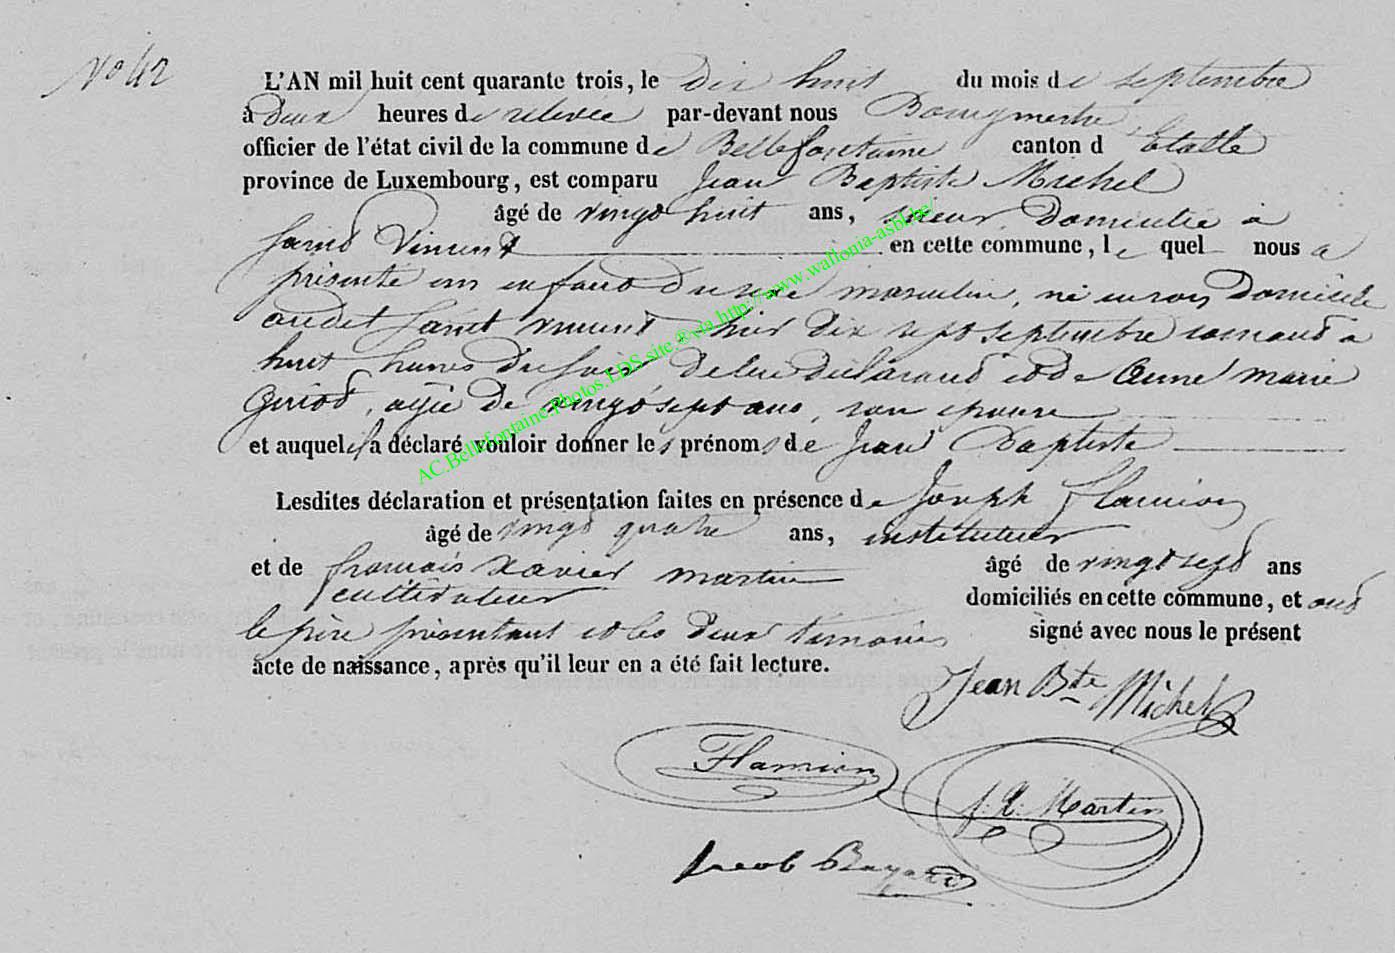 N° 42
L'AN mil huit cent quarante trois, le dix huit du mois de septembre
à deux heures de relevée par-devant nous Bourgmestre
officier de l'état civil de la commune de Bellefontaine canton d'Etalle
province de Luxembourg, est comparu Jean Baptiste Michel
âgé de vingt huit ans, domicilié à
Saint Vincent en cette commune, le quel nous a
présenté un enfant du sexe masculin, né en son domicile
audit Saint Vincent hier dix sept septembre courant à
huit heures du soir de lui déclarant et de Anne Marie
âgée de vingt sept ans, son épouse
et auquel il a déclaré vouloir donner les prénoms de Jean Baptiste
Lesdites déclaration et présentation faites en présence de Joseph Flamion
âgé de vingt quatre ans, instituteur
et de francois Xavier Martin âgé de vingt sept ans
cultivateur domiciliés en cette commune, et ont
le père présentant et les deux témoins signé avec nous le présent
acte de naissance, après qu'il leur en a été fait lecture.
Jean Bte Michel
Flamion
f. X. Martin
Jacob Bayard
AC.Bellefontaine.Photos.LDS.site ®via http://www.wallonia-asbl.be/